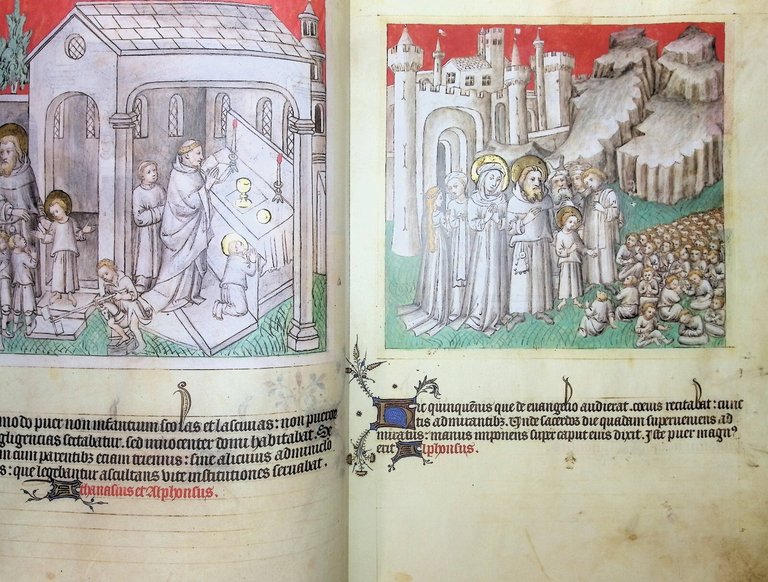 mo do puer non infantum scolas et lasciuias: non pueroꝝ
gligencias sectabatur. sed innocenter domi habitabat.
in cum parentibꝫ etiam triennis: sine alicuius
s: que legebantur ascultans vite institutiones seruabat.
Athanasius et Alphonsus.
Hic quinquēnis que de euangelio audierat. coeuis recitabat: cunc
tis admirantibꝫ. Unde sacerdos die quadam superueniens ad
miratus: manus imponens super caput eius dixit. Iste puer magnꝰ
erit. Alphonsus.